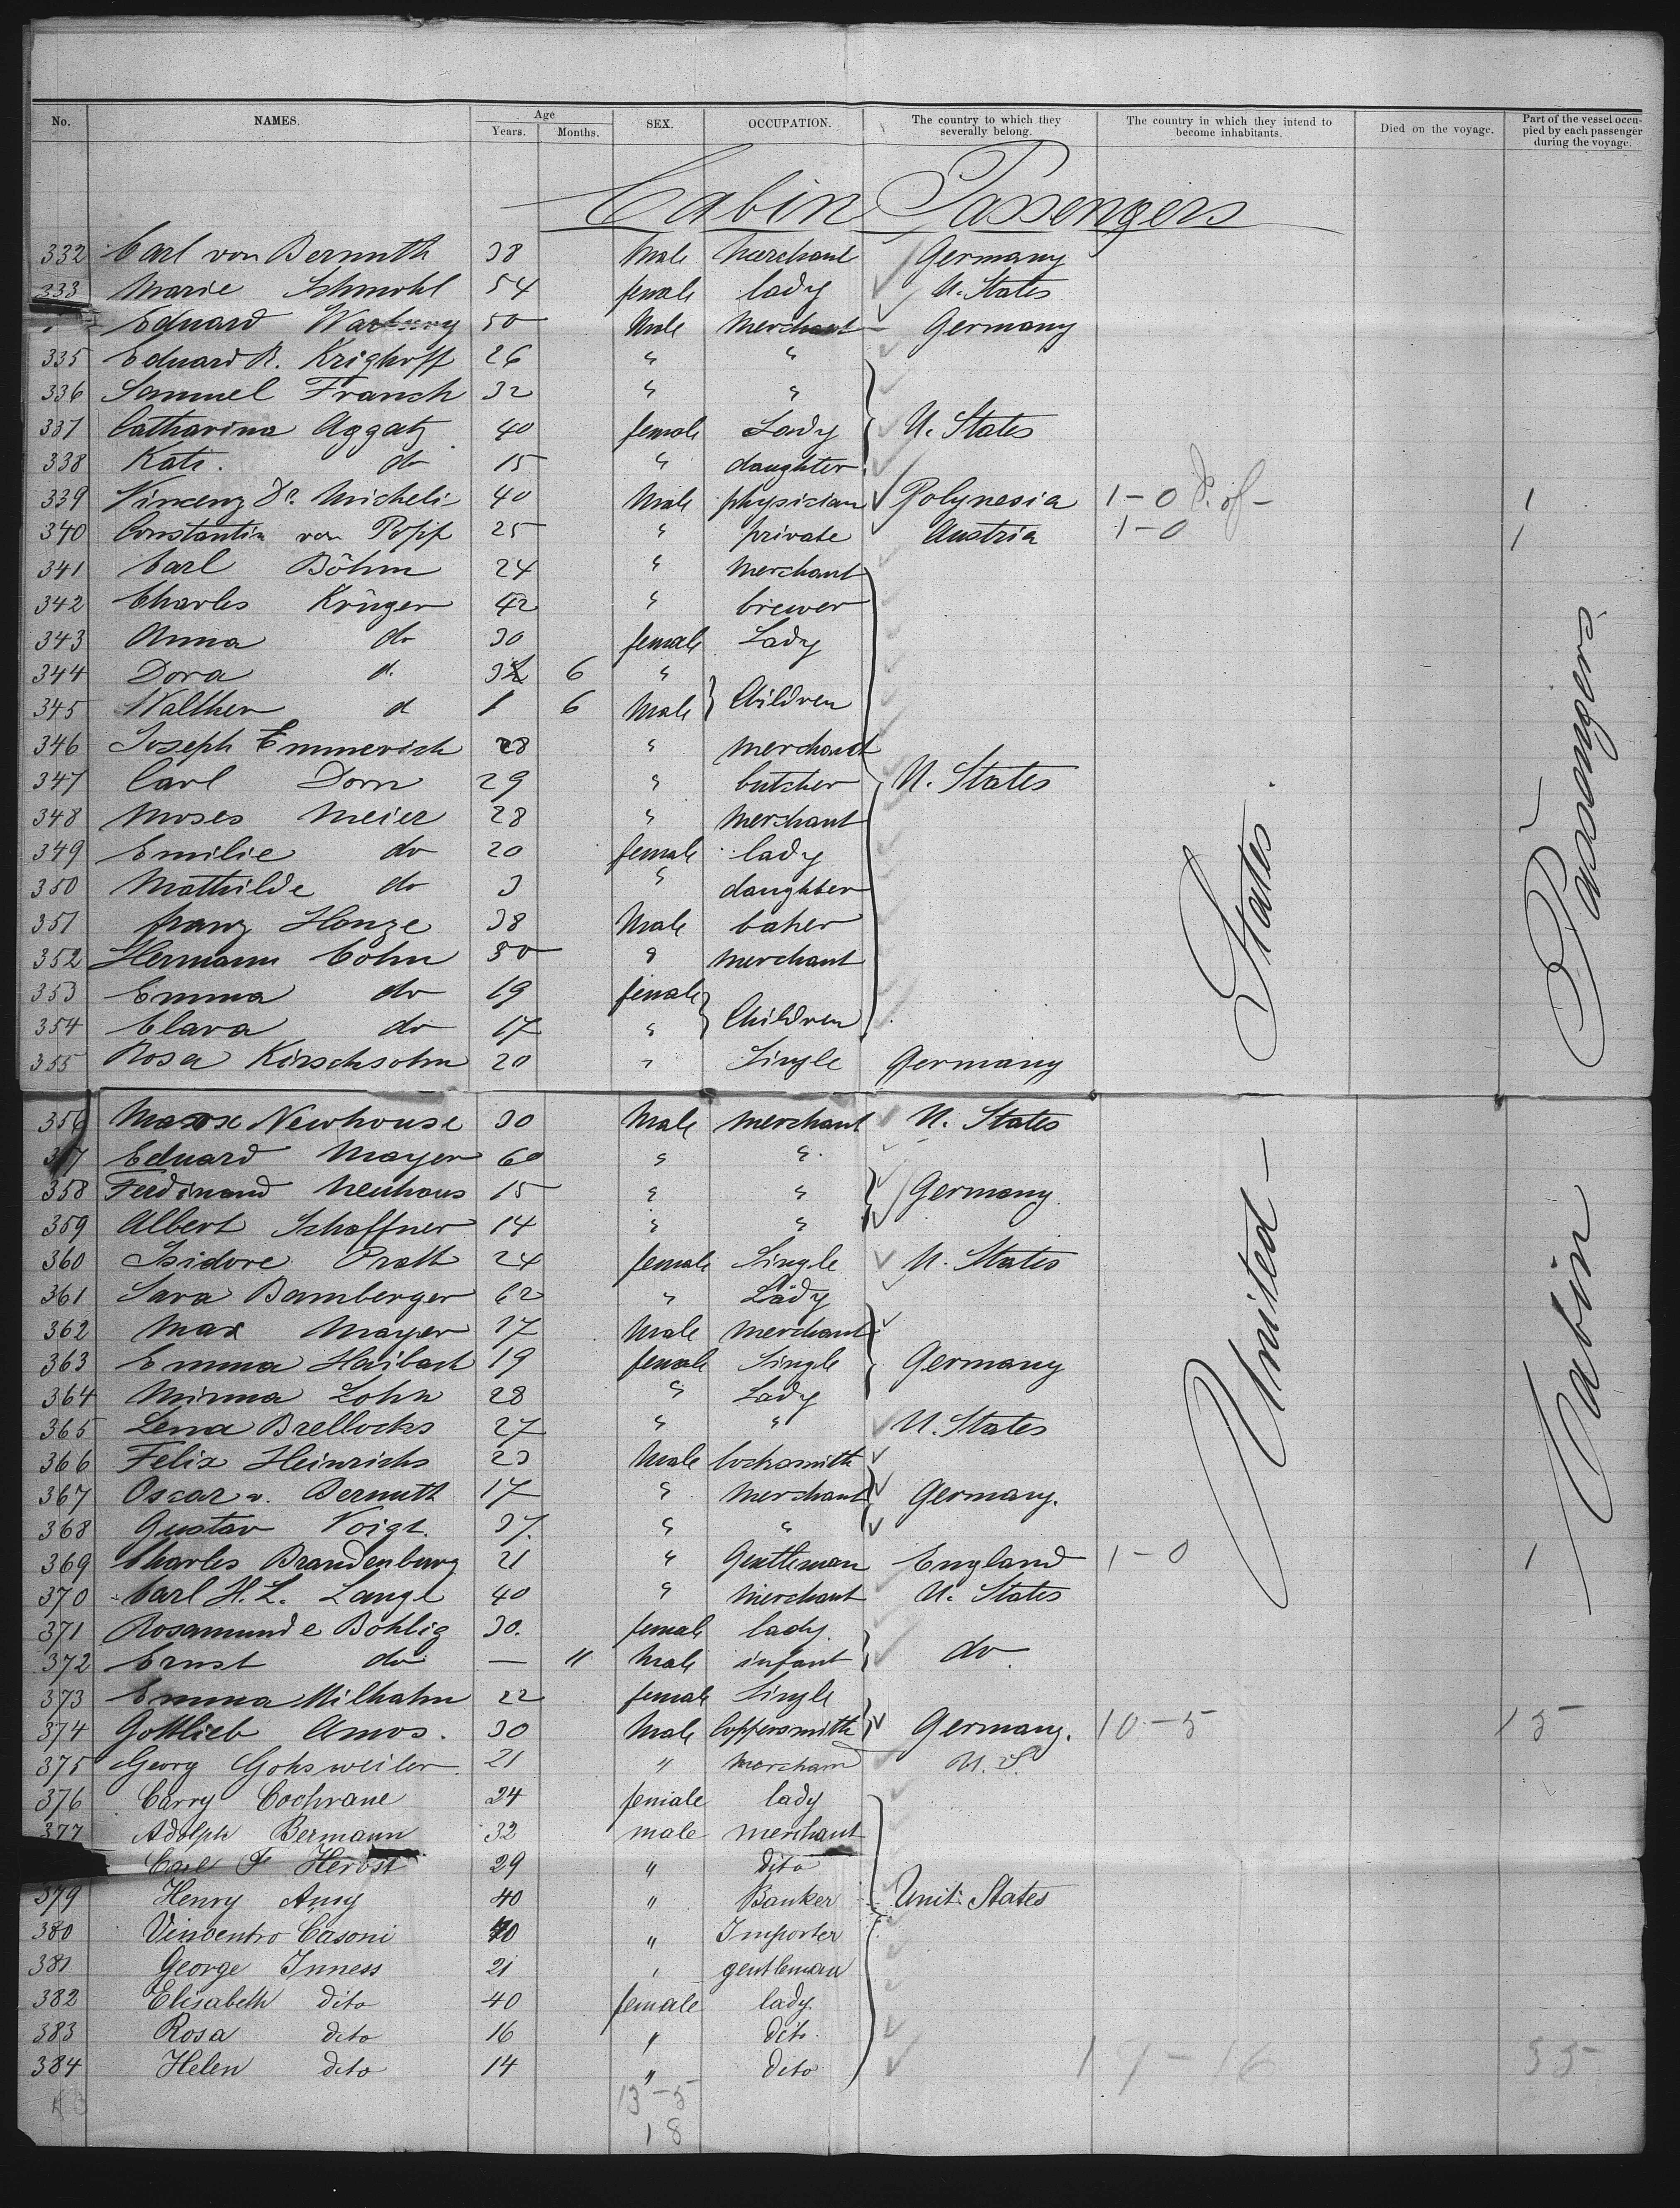 No. NAMES. Age Years. Months. SEX. OCCUPATION. The country to which they severally belong. The country in which they intend to become inhabitants. Died on the voyage. Part of the vessel occupied by each passenger during the voyage.
Cabin Passengers
332 Carl von Bernuth 38 Male Merchant Germany
333 Marie Schmohl 54 female lady U. States
Eduard Warburg 50 Male Merchant Germany
335 Eduard R. Krighoff 26 " "
336 Samuel Franck 32 " "
337 Catharina Aggatz 40 female Lady U. States
338 Kate. do 15 " daughter
339 Vincenz Dr. Micheli 40 Male physician Polynesia 1-0 1
340 Constantin von Popp 25 " private Austria 1-0 1
341 Carl Böhm 24 " Merchant
342 Charles Krüger 42 " brewer
343 Anna do 30 female Lady
344 Dora d. 3 6 "
345 Walther d 1 6 Male Children
346 Joseph Emmerich 28 " merchant
347 Carl Dorn 29 " butcher U. States
348 Moses Meier 28 " Merchant
349 Emilie do 20 female lady
350 Mathilde do 3 " daughter
351 Franz Honze 38 Male baker
352 Hermann Cohn 50 " merchant
353 Emma do 19 female
354 Clara do 17 " Children
355 Rosa Kirschsohn 20 " Single Germany
356 Max Newhouse 30 Male merchant U. States
357 Eduard Mayer 60 " "
358 Ferdinand Neuhaus 15 " " Germany.
359 Albert Schaffner 14 " "
360 Isidore Pratt 24 female Single U. States
361 Sara Bamberger 62 " Lady
362 Max Mayer 17 Male merchant
363 Emma Haibach 19 female Single Germany
364 Minna Lohn 28 " Lady
365 Lena Brellochs 27 " " U. States
366 Felix Heinrichs 23 Male locksmith
367 Oscar v. Bernuth 17 " Merchant Germany.
368 Gustav Voigt. 37. " "
369 Charles Brandenburg 21 " Gentleman England 1-0 1
370 Carl H. L. Lange 40 " Merchant U. States
371 Rosamunde Bohlig 30. female lady
372 Ernst do — 11 Male infant do.
373 Emma Milhahn 22 female Single
374 Gottlieb Amos. 30 Male Coppersmith Germany. 10-5 15
375 Georg Gohsweiler. 21 " merchand U.S.
376 Carry Cochrane 24 female lady
377 Adolph Bermann 32 male merchant
Carl F Herbst 29 " dito
379 Henry Amy 40 " Banker Unit. States
380 Vincentro Casoni 40 " Importer
381 George Inness 21 " gentleman
382 Elisabeth dito 40 female lady.
383 Rosa dito 16 " dito.
384 Helen dito 14 " dito 17-16 33
13-5
18
United States
Cabin Passengers